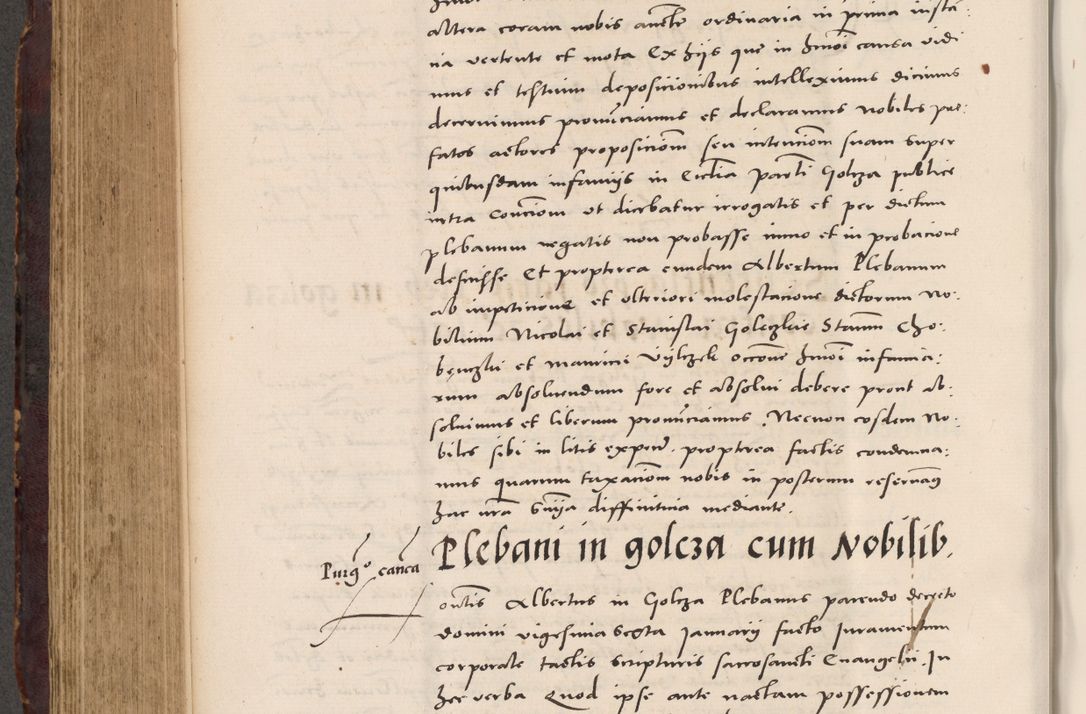 altera coram nobis aucte ordinaria in prima insta:
tia vertente et mota Ex hijs que in hmoi causa vidi
mus et testium deposicionibus intelleximus dicimus
decernimus pronuciamus et declaramus nobiles pre:
fatos actores proposiciom seu intenciom suam super
quibusdam infamijs in Ecclia parlli Golcza publice
intra Concionem ut dicebatur irrogatis et per dictum
plebanum negatis non probasse immo et in probacione
defecisse Et propterea eundem Albertum Plebanum
ab impeticione et ulteriori molestacione dictorum No:
bilium Nicolai et Stanislai Golczskie Stanm Cho:
benzki et Mauricij Vylczek occone hmoi infamia:
rum absoluendum fore et absolui debere prout ab:
soluimus et liberum pronuciamus. Necnon eosdem No:
biles sibi in litis expen. propterea factis condemna:
mus quarum taxaciom nobis in posterum reseruan
hac nra snia diffinitiua mediante.
Plebani in golcza cum Nobilib.
Purgo canca
Albertus in Golcza Plebanus parendo decreto
domini vigesima sexta Januarij facto Juramentum
corporale tactis scripturis sacrosancti Euangelii. In
hec verba Quod ipse ante nactam possessionem